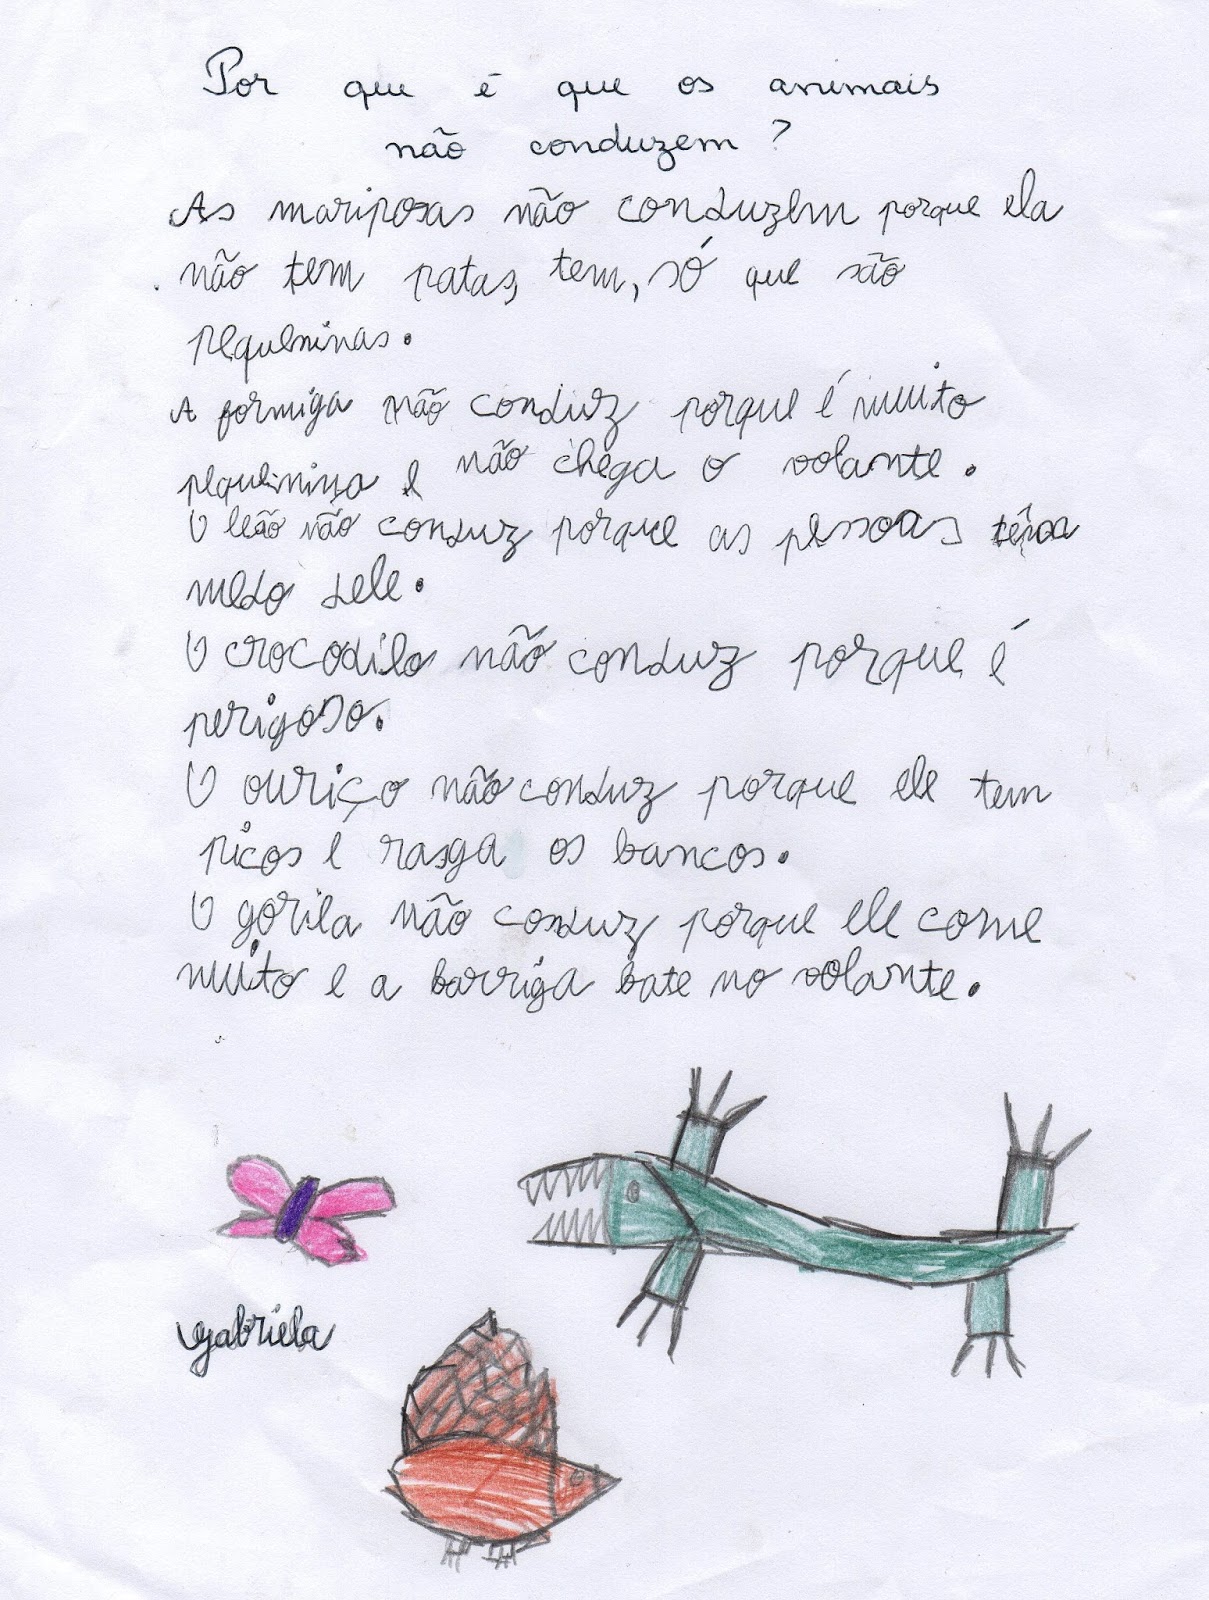 Por que é que os animais
não conduzem?
As mariposas não conduzem porque ela
não tem patas, tem, só que são
pequeninas.
A formiga não conduz porque é muito
pequenina e não chega o volante.
O leão não conduz porque as pessoas
medo dele.
O crocodilo não conduz porque é
perigoso.
O ouriço não conduz porque ele tem
picos e rasga os bancos.
O gorila não conduz porque ele come
muito e a barriga bate no volante.
gabriela